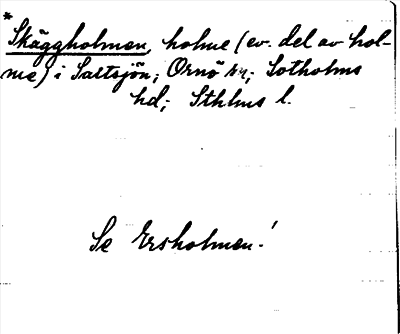 *
Skäggholmen, holme (ev. del av hol-
me) i Saltsjön; Ornö sn; Sotholms
hd; Sthlms l.
Se Ersholmen!